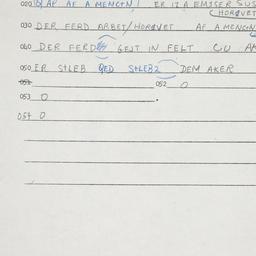 020 AF A MENCIN! ER IZ A EMISER SUS
(HOROVET
030 DER FERD ARBET/HOROVET AF A MENCIN
040 DER FERD GEJT IN FELT CU
050 ER STLEB QED STLEB2 DEM AKER
051 052 0
053 0
054 0